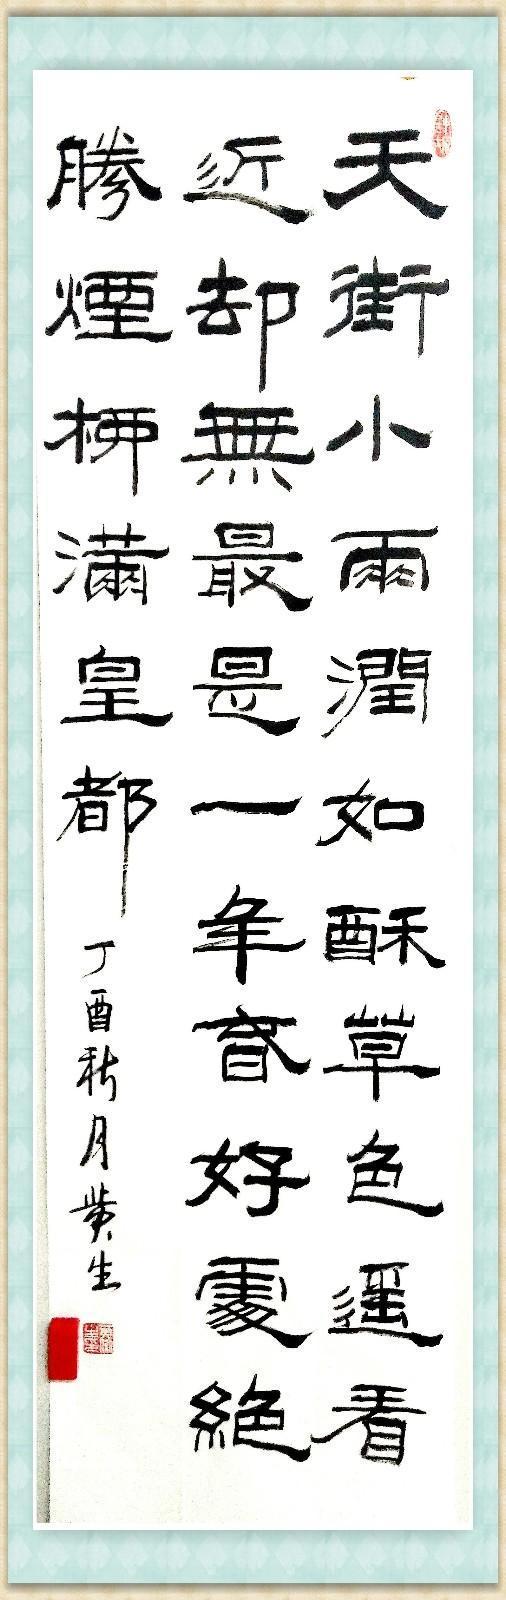 天街小雨潤如酥草色遥看
近却無最是一年春好處絕
勝煙柳滿皇都
丁酉秋月黄生